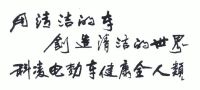 用清洁的车
创造清洁的世界
科凌电动车健康全人類